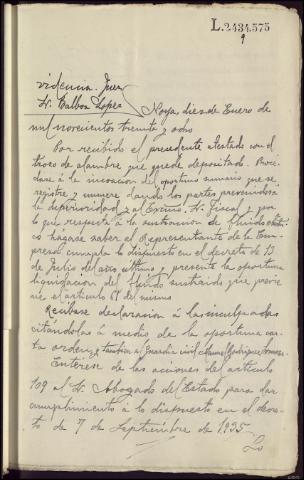 L.2434.575
9
videncia. Juez
Sr. Balboa López
Noya, diez de Enero de
mil novecientos treinta y ocho
Por recibido el precedente Testado con el
trozo de alambre que quede depositado. Procé-
dase a la incoacion del oportuno sumario que se
registre y numere dando los partes prevenidos a
la Superioridad y al Excmo. Sr. Fiscal y por
lo que respecta a la sustraccion de fluido eléctri-
co hágase saber al Representante de la Em-
presa cumpla lo dispuesto en el decreto de 13
de Julio del año último y presente la oportuna
liquidacion del fluido sustraido que previe-
ne el articulo 6º del mismo
Recibase declaracion a la inculpada
citándolas a medio de la oportuna car-
ta orden y tambien al Guardia civil Manuel Rodriguez
Enterese de las acciones del articulo
109 al Sr. Abogado del Estado para dar
cumplimiento a lo dispuesto en el decre-
to de 7 de Septiembre de 1935.
Lo